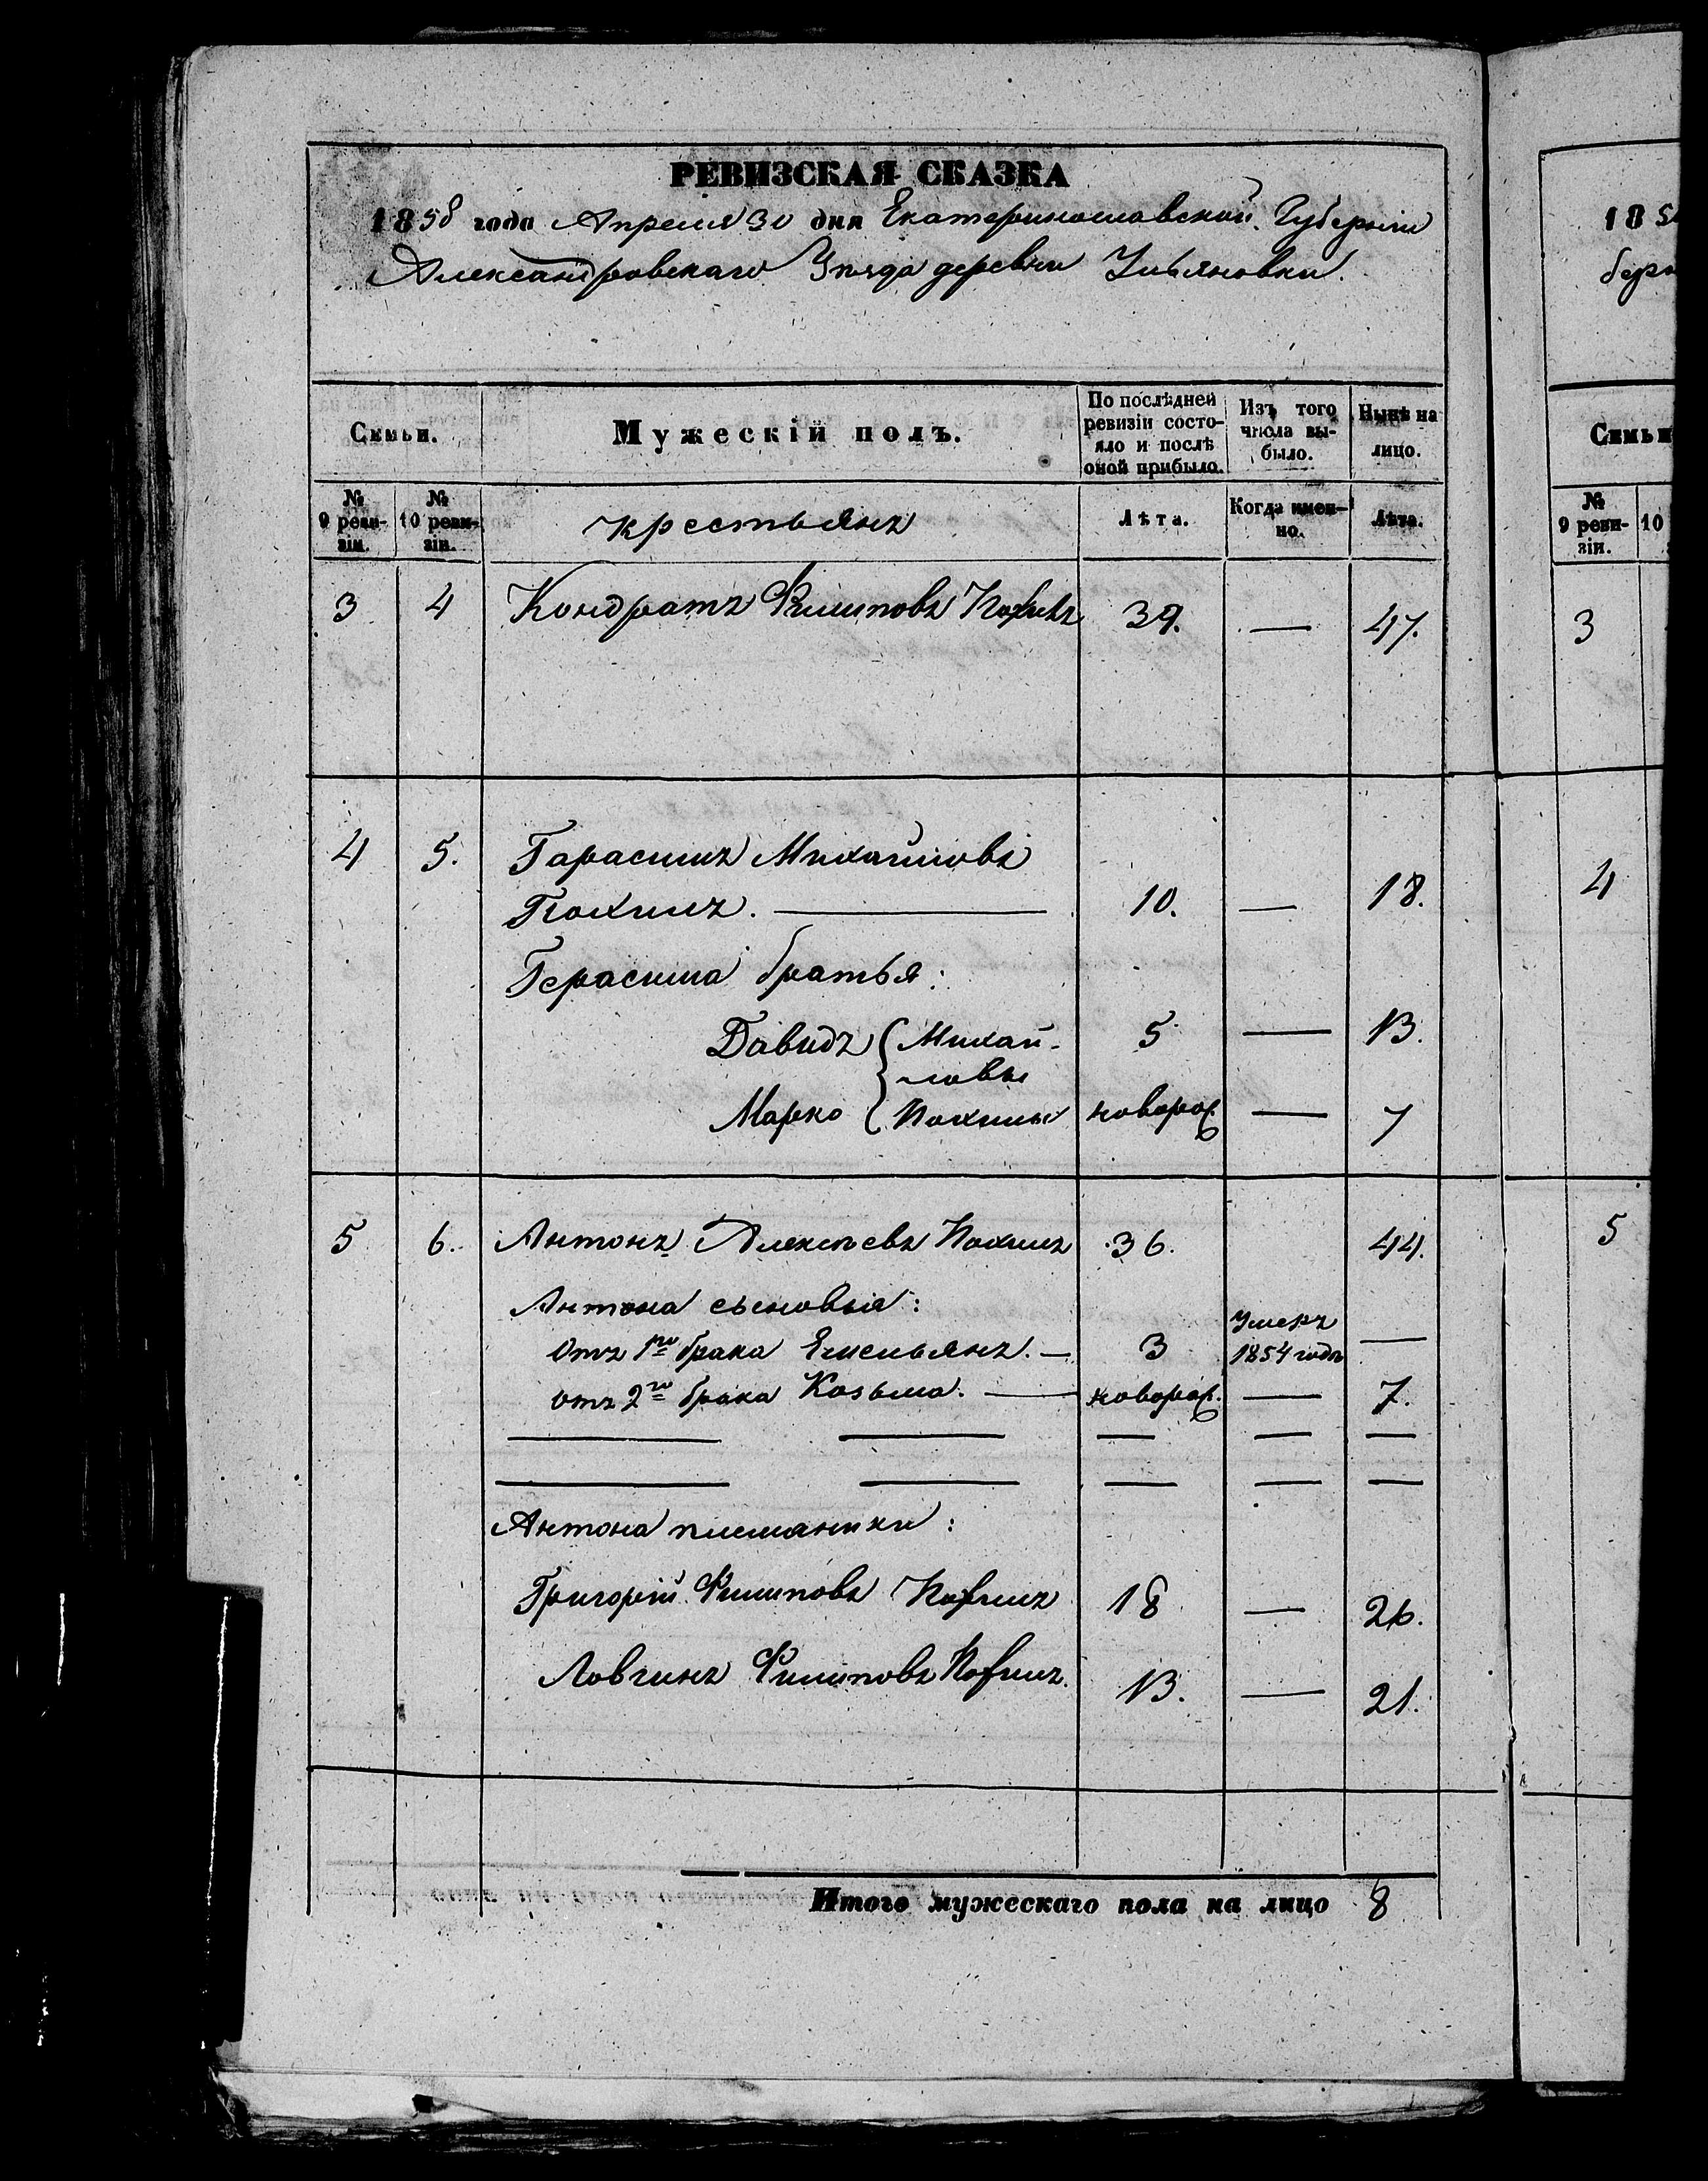 РЕВИЗСКАЯ СКАЗКА
1858 года Апреля 30 дня Екатеринославской Губерніи
Александровскаго Уезда деревни Ульяновки.
Семьи.
Мужескій полъ.
По послѣдней ревизіи состо-
яло и послѣ оной прибыло.
Изъ того числа вы-
было.
Нынѣ на лицо.
№ 9 реви-
зіи.
№ 10 реви-
зіи.
крестьянъ
Лѣта.
Когда имен-
но.
Лѣта.
3 4 Кондратъ Филиповъ 39. — 47.
4 5. Гарасимъ Михайловъ
Похилъ. — 10. — 18.
Герасима братья:
Давидъ Михай- 5 — 13.
ловы
Марко Похилы новорож. — 7
5 6. Антонъ Алексѣевъ Похилъ 36. 44.
Антона сыновья:
отъ 1го брака Емельянъ. — 3 Умеръ 1854 годъ —
отъ 2го брака Козьма. — новорож. — 7.
Антона племяники:
Григорій Филиповъ Похилъ 18 — 26.
Логвинъ Филиповъ Похилъ. 13. — 21.
Итого мужескаго пола на лицо 8
18
Семьи
№ 9 реви-
зіи.
10
3
4
5